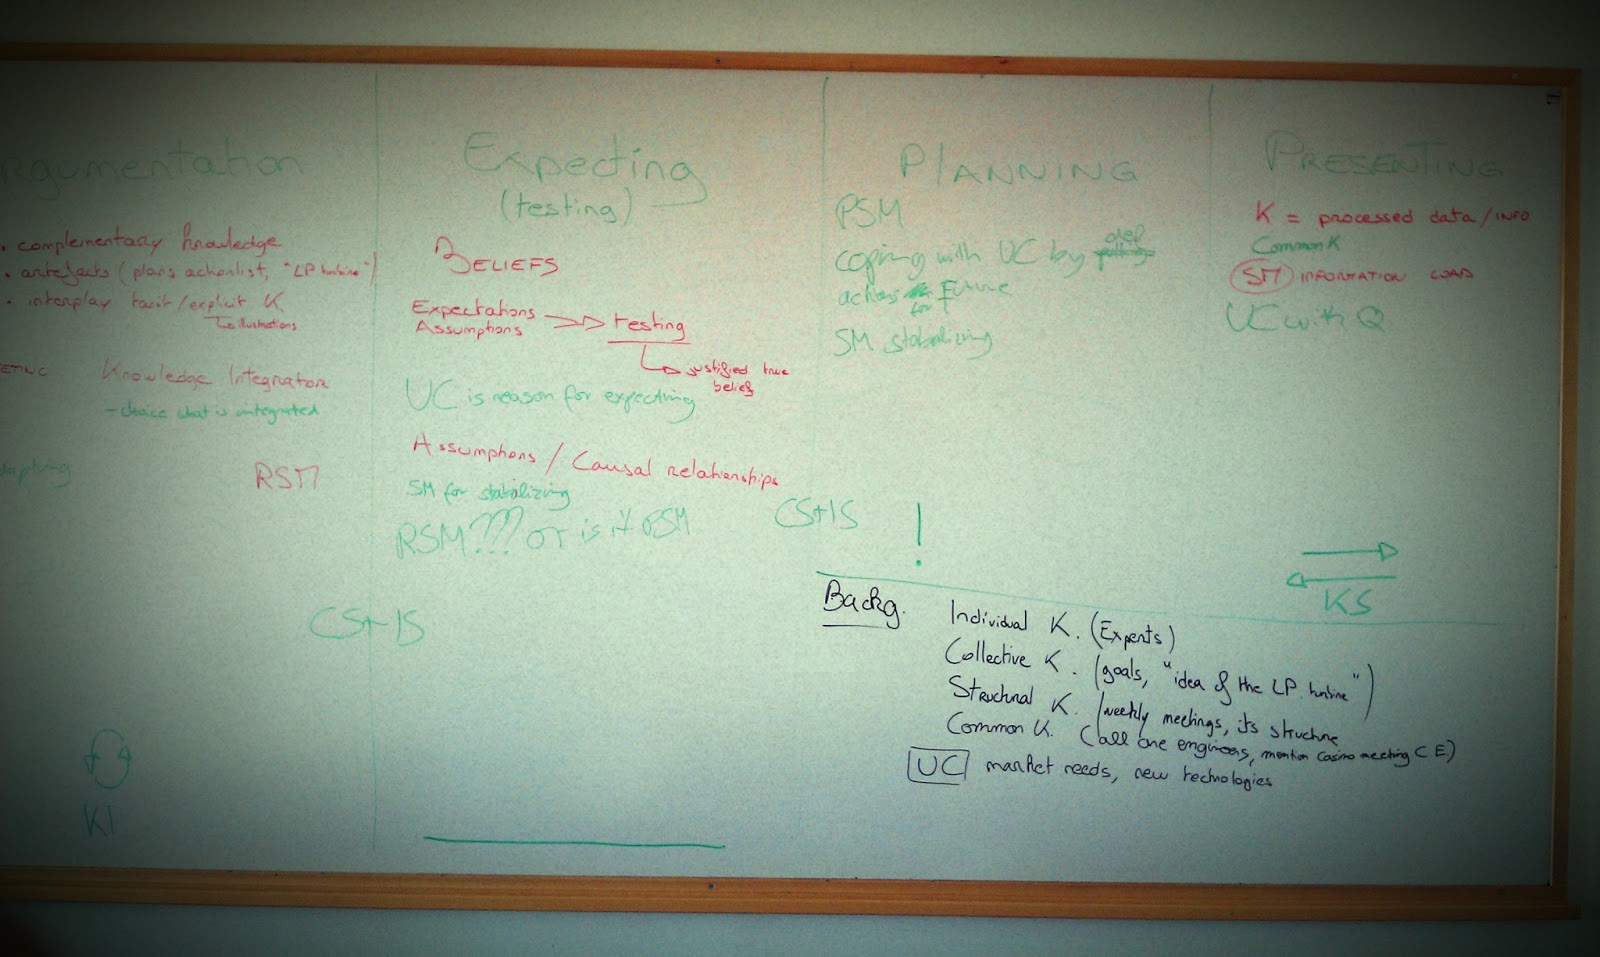 rgumentation
• complementary knowledge
• artefacts (plans actionlist, "LP turbine")
• interplay tacit/explicit K
illustrations
Knowledge Integration
- choice what is integrated
RSM
CS+IS
KI
Expecting
(testing)
BELIEFS
Expectations
Assumptions
testing
justified true
belief
UC is reason for expecting
Assumptions / Causal relationships
SM for stabalizing
RSM??? or is it PSM
CS+IS
PLANNING
PSM
coping with UC by def
actions for Future
SM stabalizing
!
PRESENTING
K = processed data/INFO
Common K
SM INFORMATION LOAD
UC with Q
KS
Backg.
Individual K. (Experts)
Collective K. (goals, "idea of the LP turbine")
Structural K. (weekly meetings, its structure
Common K. (all are engineers, mention casino meeting CE)
UC market needs, new technologies